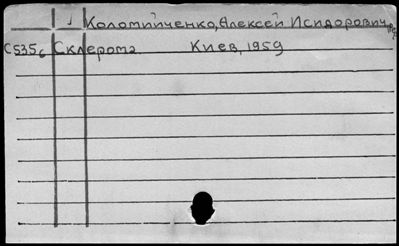 Коломийченко, Алексей Исидорович,
C535c Склерома Киев, 1959